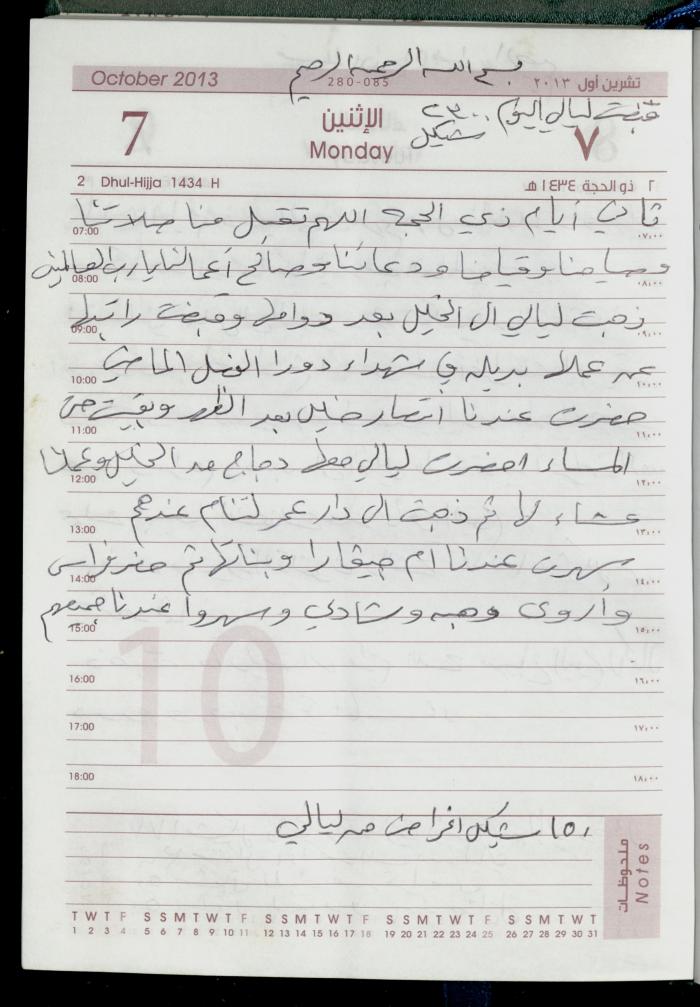 بسم الله الرحمن الرحيم
October 2013
280-085
تشرين أول ٢٠١٣
قبضت ليالي اليوم ٢٣٠٠ شيكل
7
الإثنين
Monday
٧
2 Dhul-Hijja 1434 H
٢ ذو الحجة ١٤٣٤ هـ
ثاني أيام ذي الحجه اللهم تقبل منا صلاتنا
07:00 ٠٧,٠٠
وصيامنا وقيامنا ودعائنا وصالح أعمالنا يا رب العالمين
08:00 ٠٨,٠٠
ذهبت ليالي ال الخليل بعد دوامها وقبضت راتبها
09:00 ٠٩,٠٠
عن عملا بديله في شهداء دورا الفصل الماضي
10:00 ١٠,٠٠
حضرت عندنا انتصار بعد الظهر وبقيت حتى
11:00 ١١,٠٠
المساء احضرت ليالي معها دجاج من الخليل وعملنا
12:00 ١٢,٠٠
عشاء لا ثم ذهبت ال دار عمر لتنام عندهم
13:00 ١٣,٠٠
سهرت عندنا ام جيفارا وبناتها ثم حضر فراس
14:00 ١٤,٠٠
وأروى وهبه وشادي وسهروا عندنا جميعهم
15:00 ١٥,٠٠
10
16:00 ١٦,٠٠
17:00 ١٧,٠٠
18:00 ١٨,٠٠
١٥٠ شيكل اغراض من ليالي
ملحوظات
Notes
T W T F S S M T W T F S S M T W T F S S M T W T F S S M T W T
1 2 3 4 5 6 7 8 9 10 11 12 13 14 15 16 17 18 19 20 21 22 23 24 25 26 27 28 29 30 31